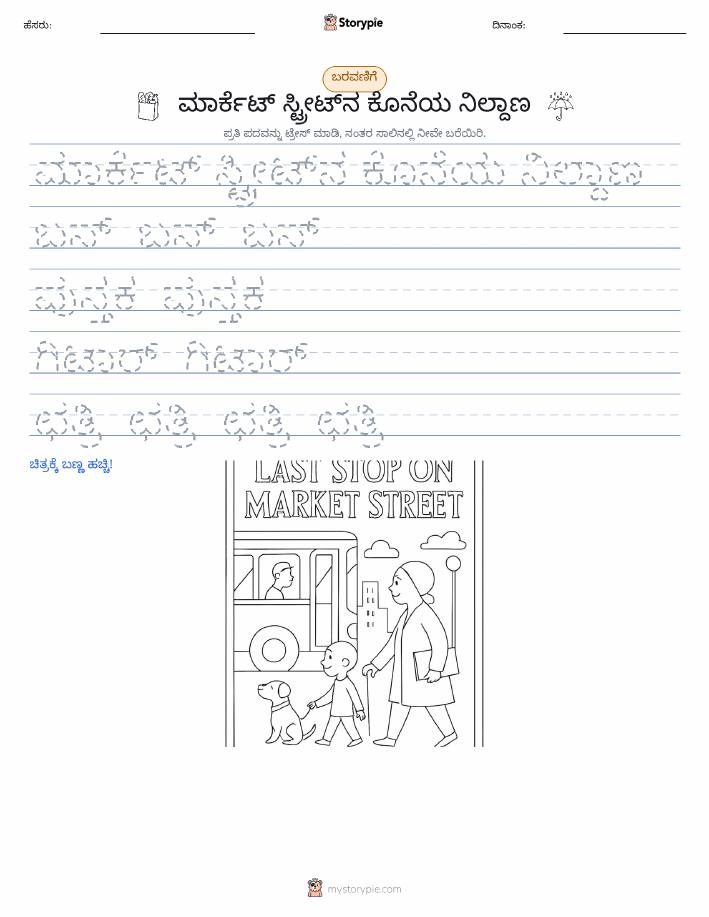 ಹೆಸರು:
Storypie
ದಿನಾಂಕ:
ಬರವಣಿಗೆ
ಮಾರ್ಕೆಟ್ ಸ್ಟ್ರೀಟ್‌ನ ಕೊನೆಯ ನಿಲ್ದಾಣ
ಪ್ರತಿ ಪದವನ್ನು ಟ್ರೇಸ್ ಮಾಡಿ, ನಂತರ ಸಾಲಿನಲ್ಲಿ ನೀವೇ ಬರೆಯಿರಿ.
ಮಾರ್ಕೆಟ್ ಸ್ಟ್ರೀಟ್‌ನ ಕೊನೆಯ ನಿಲ್ದಾಣ
ಬಸ್ ಬಸ್ ಬಸ್
ಪುಸ್ತಕ ಪುಸ್ತಕ
ಗಿಟಾರ್ ಗಿಟಾರ್
ಛತ್ರಿ ಛತ್ರಿ ಛತ್ರಿ ಛತ್ರಿ
ಚಿತ್ರಕ್ಕೆ ಬಣ್ಣ ಹಚ್ಚಿ!
LAST STOP ON
MARKET STREET
mystorypie.com